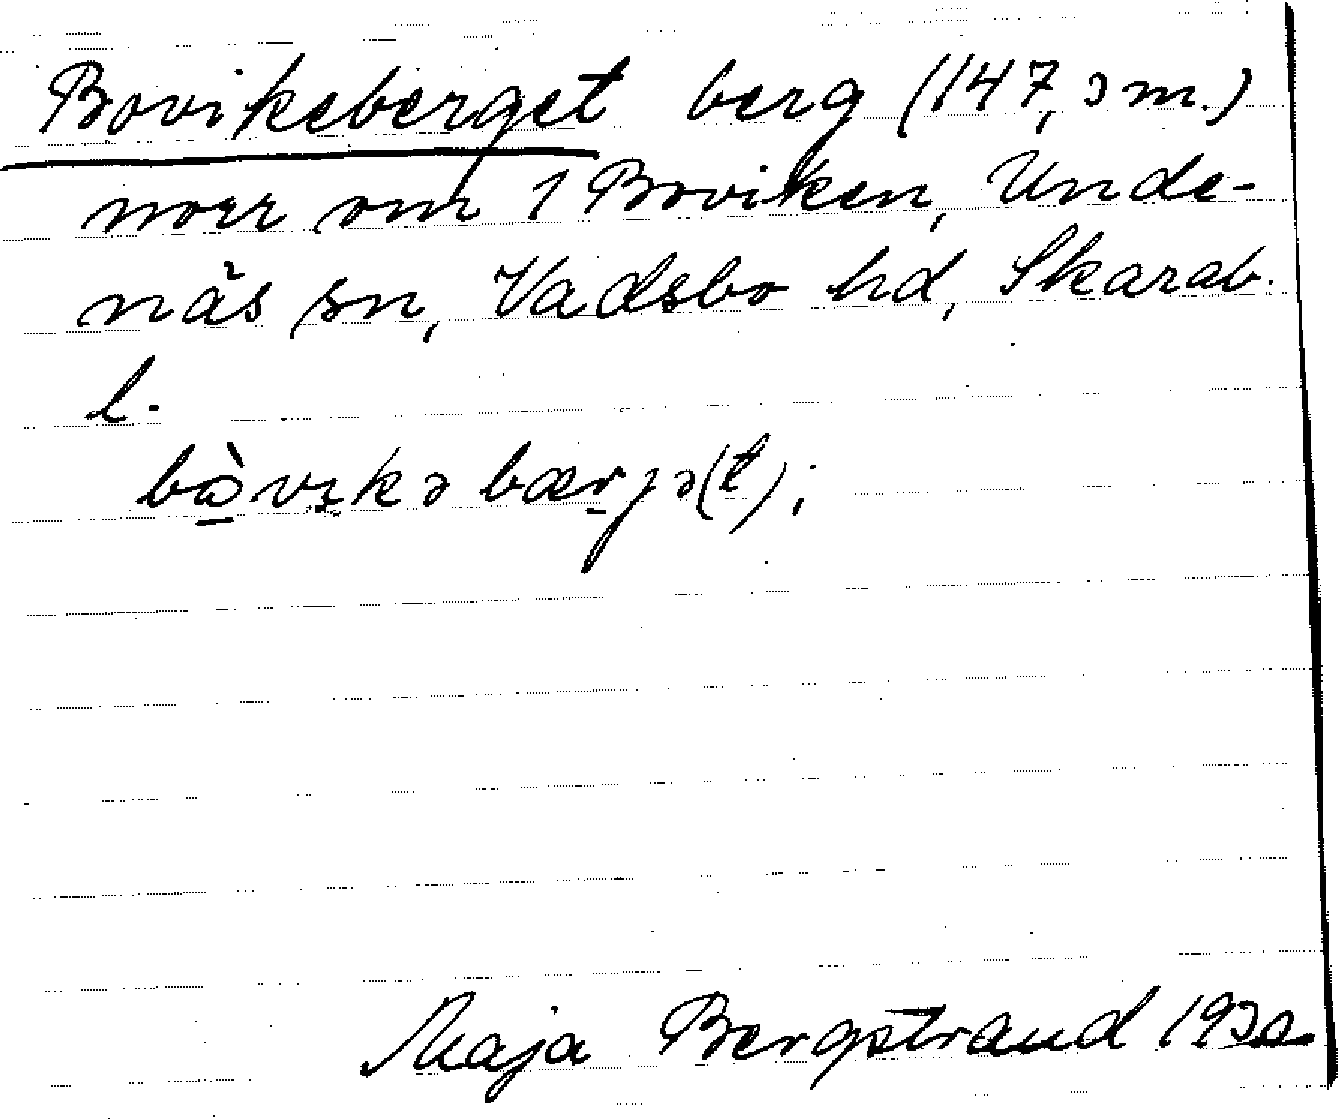 Bovikeberget berg (147,3 m.)
norr om 1 Boviken, Unde-
näs sn, Vadsbo hd, Skarab.
l.
bὼvɪkə bærjə(t);
Maja Bergstrand 1930.